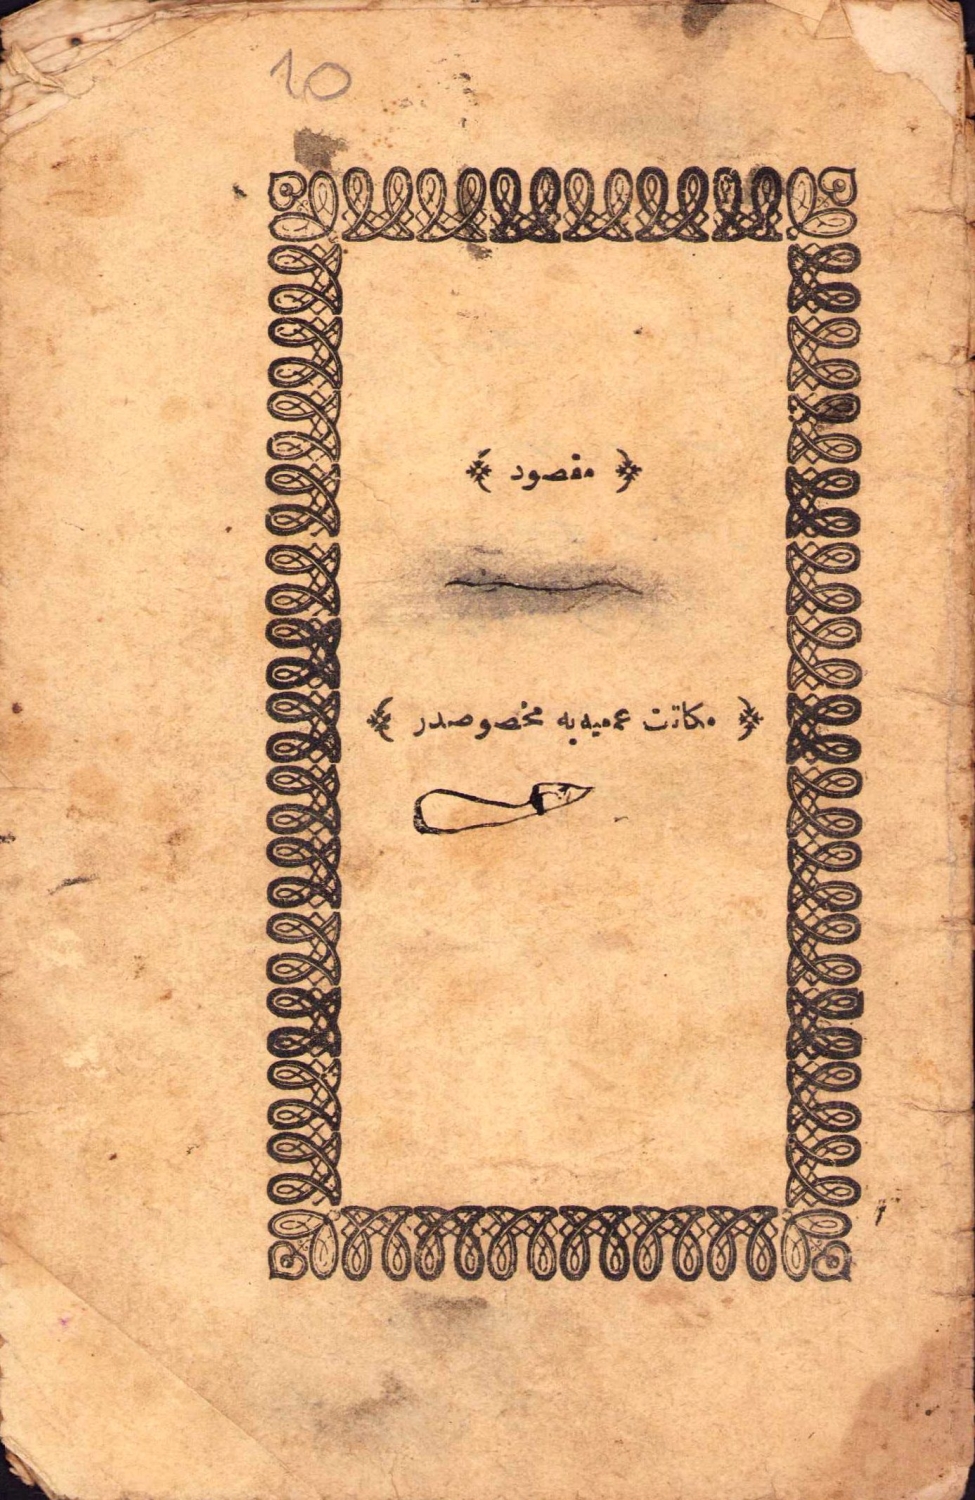 10
﴿ مقصود ﴾
﴿ مكاتب عموميه يه مخصوصدر ﴾